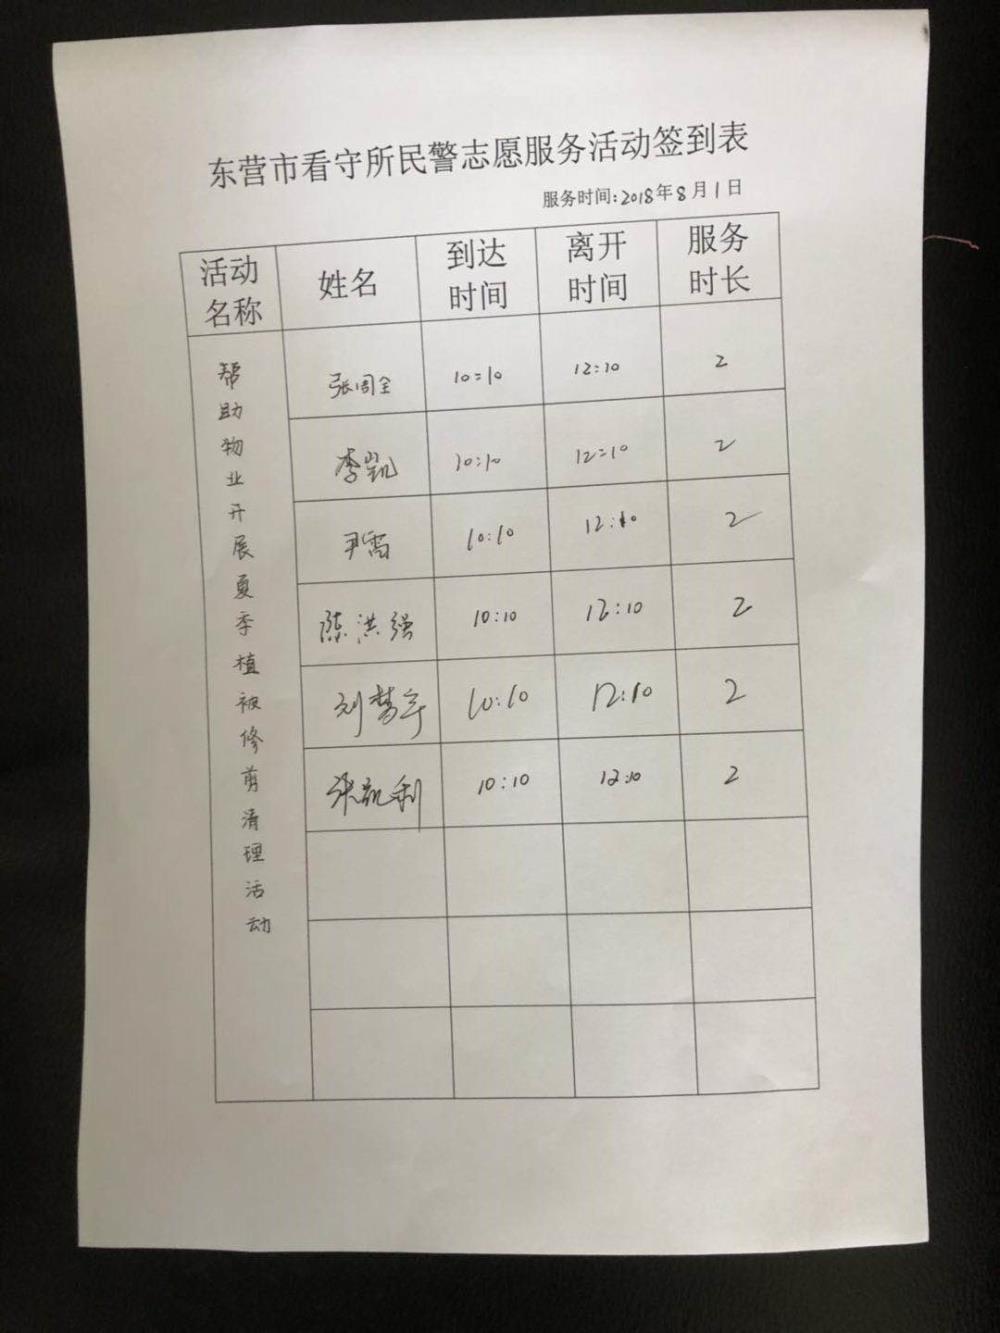 东营市看守所民警志愿服务活动签到表
服务时间:2018年8月1日
活动名称 姓名 到达时间 离开时间 服务时长
帮助物业开展夏季植被修剪清理活动
张周全 10:10 12:10 2
李凯 10:10 12:10 2
尹雷 10:10 12:10 2
陈洪强 10:10 12:10 2
刘梦宇 10:10 12:10 2
张凯利 10:10 12:10 2